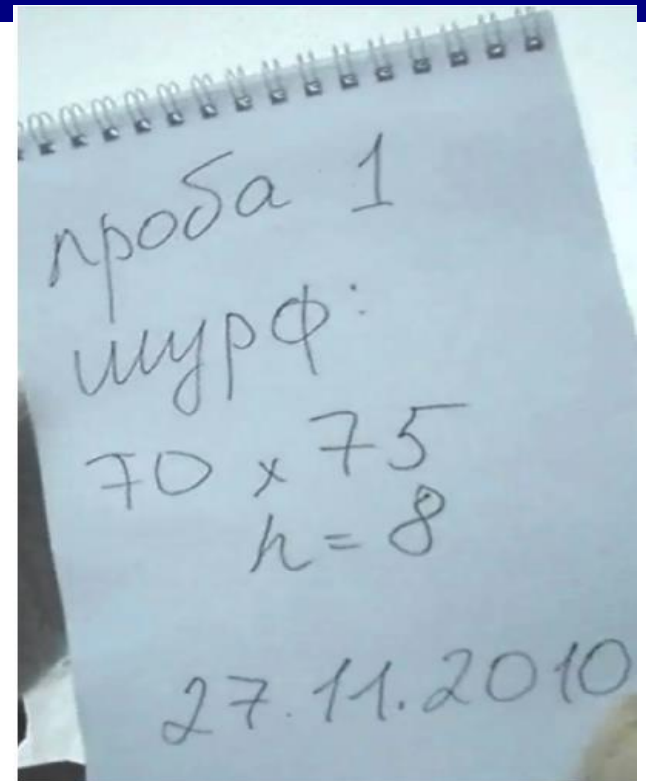 проба 1
шурф:
70 x 75
h = 8
27.11.2010